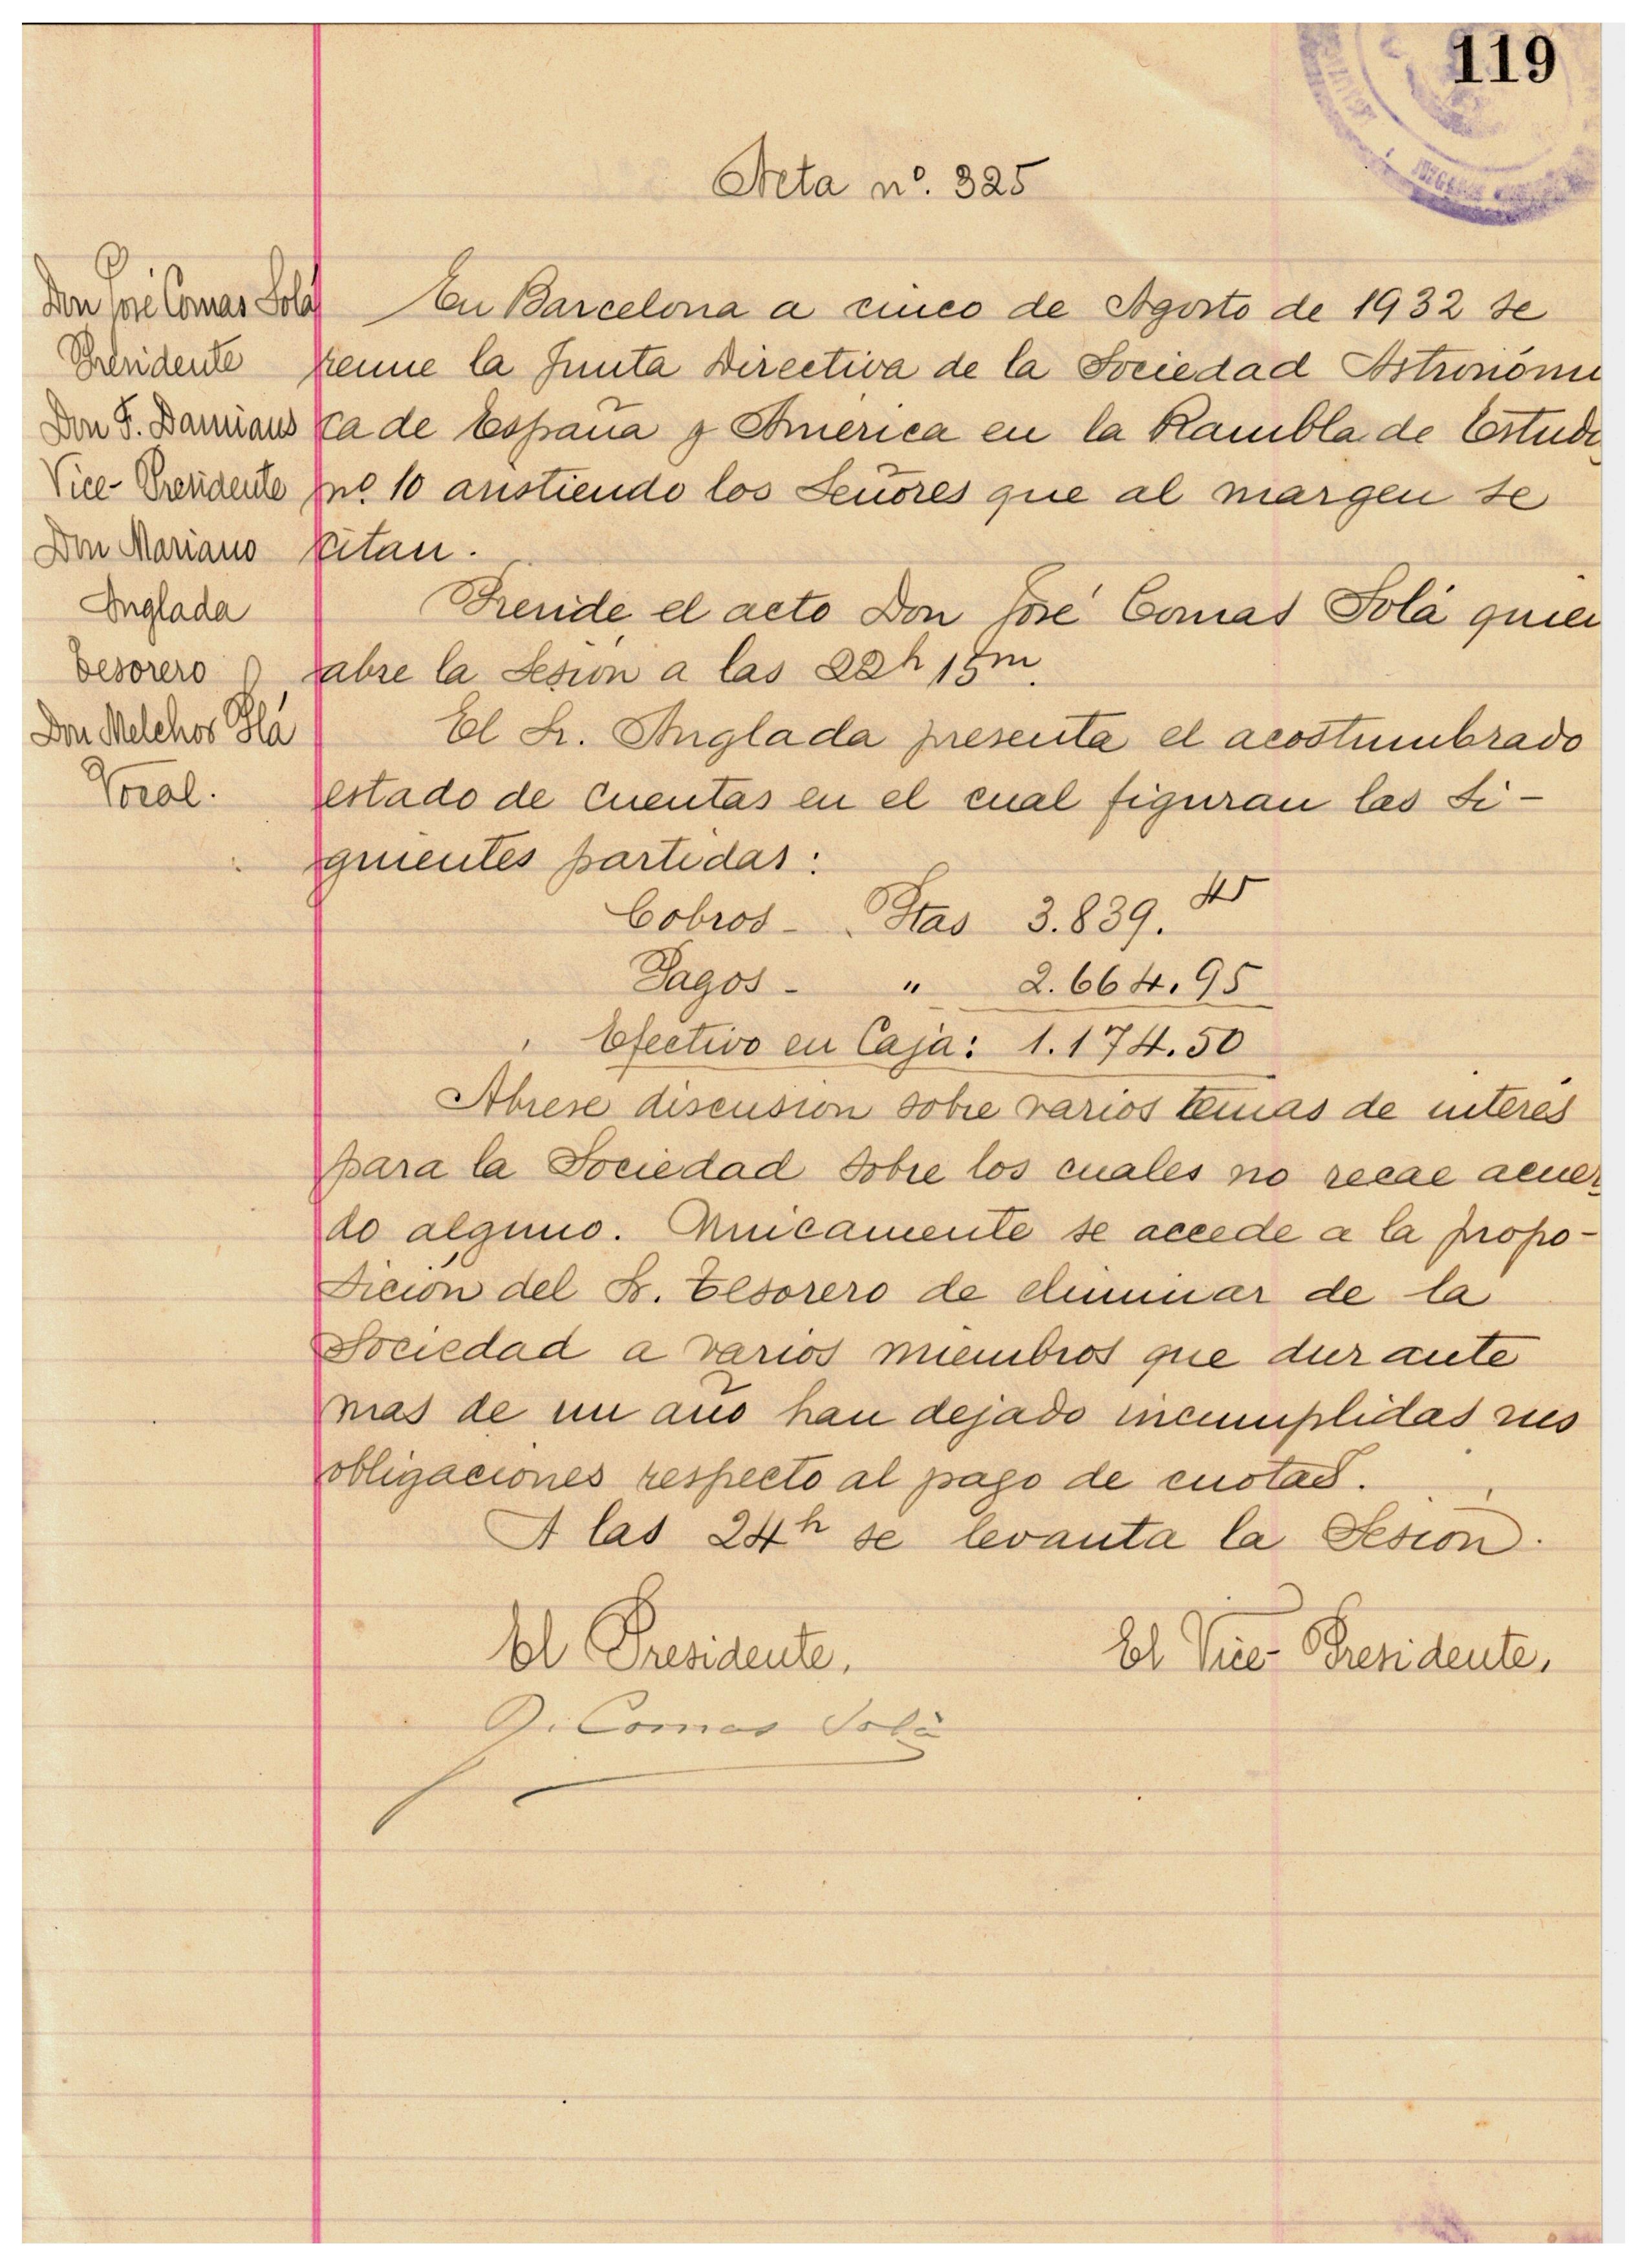 119
Acta nº. 325
Don José Comas Solá
Presidente
Don F. Damians
Vice-Presidente
Don Mariano
Inglada
Tesorero
Don Melchor Plá
Vocal.
En Barcelona a cinco de Agosto de 1932 se
reune la Junta Directiva de la Sociedad Astronómi
ca de España y America en la Rambla de Estudi
nº 10 asistiendo los Señores que al margen se
citan.
Preside el acto Don José Comas Solá quien
abre la Sesión a las 22h 15m.
El Sr. Inglada presenta el acostumbrado
estado de cuentas en el cual figuran las si-
guientes partidas:
Cobros - Ptas 3.839.45
Pagos - " 2.664.95
Efectivo en Caja: 1.174.50
Abrese discusion sobre varios temas de interés
para la Sociedad sobre los cuales no recae acuer
do alguno. Unicamente se accede a la propo-
sición del Sr. Tesorero de eliminar de la
Sociedad a varios miembros que durante
mas de un año han dejado incumplidas sus
obligaciones respecto al pago de cuotas.
A las 24h se levanta la Sesión.
El Presidente,
El Vice-Presidente,
J. Comas Solà